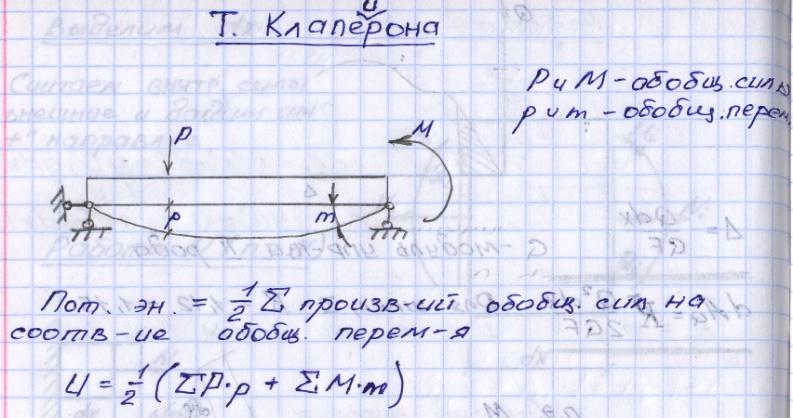 Т. Клапейрона
P и M – обобщ. силы
p и m – обобщ. перем.
P
M
p
m
Пот. эн. = 1/2 Σ произв-ий обобщ. сил на
соотв-ие обобщ. перем-я
U = 1/2 (ΣP·p + ΣM·m)